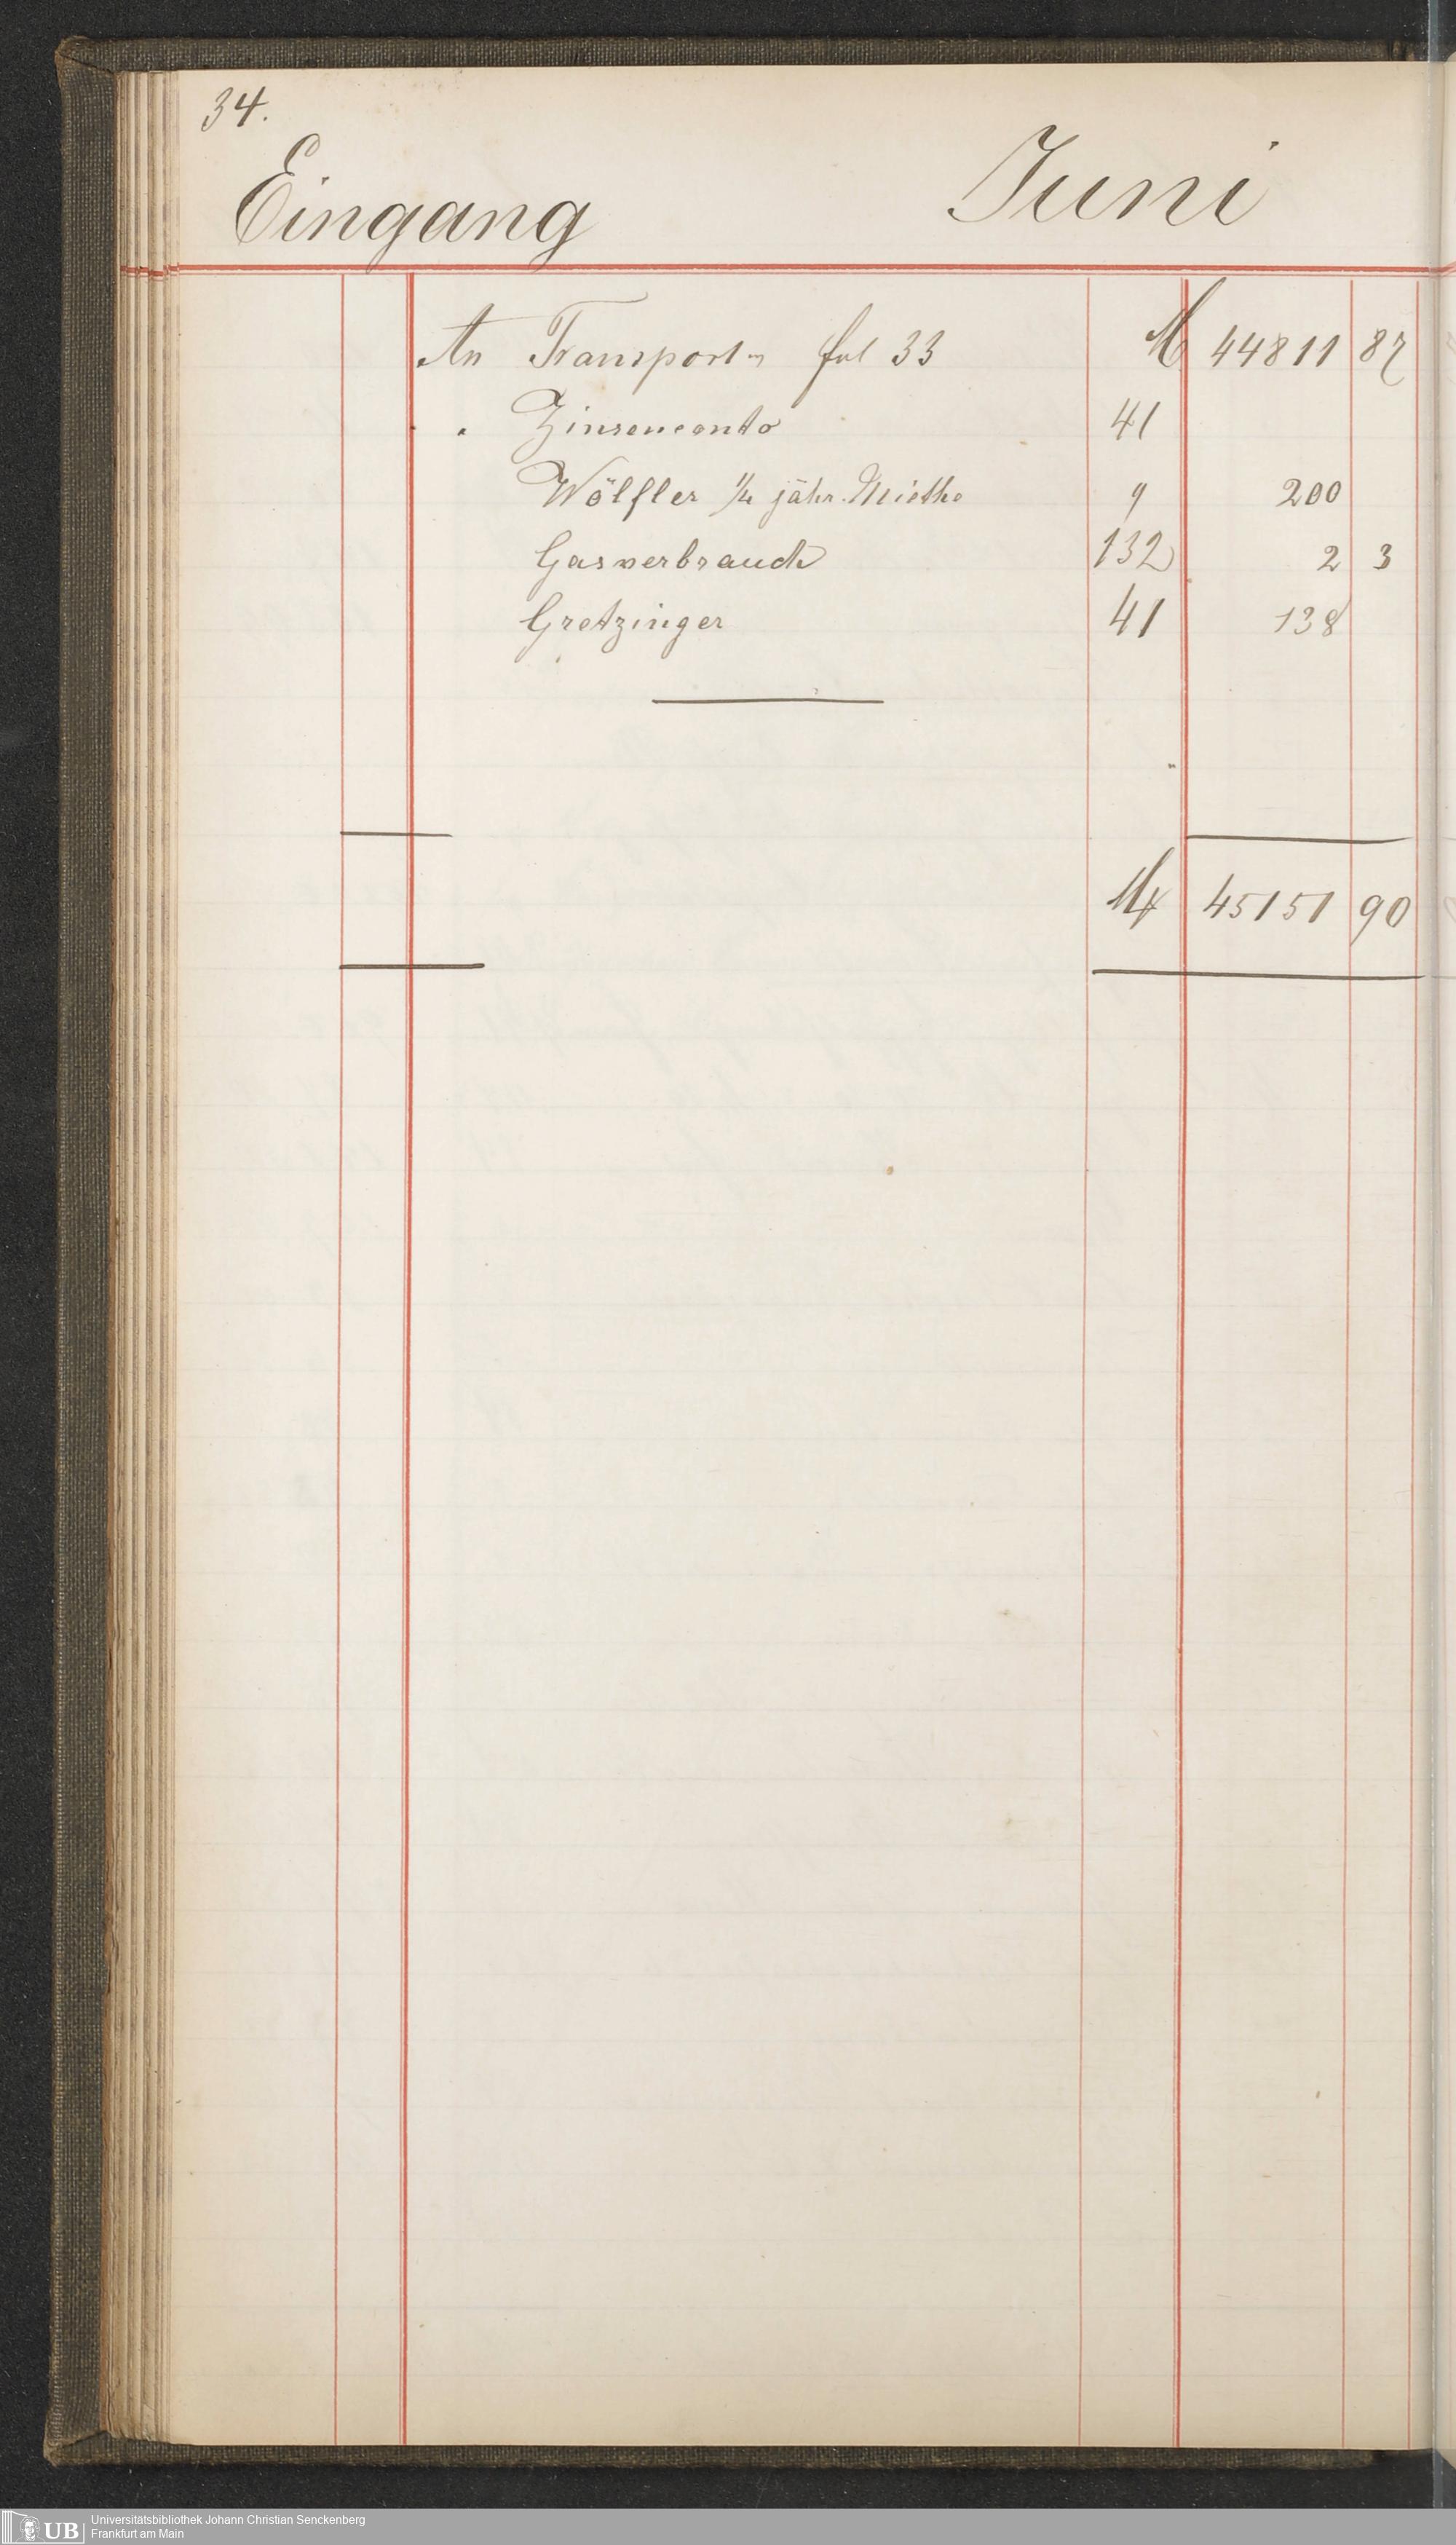 34.
Eingang Juni
An Transport fol 33 M 44811 87
" Zinsenconto 41
Wölfler 1/4 jähr. Miethe 9 200
Gasverbrauch 132 2 3
Gretzinger 41 138
M 45151 90
UB Universitätsbibliothek Johann Christian Senckenberg
Frankfurt am Main